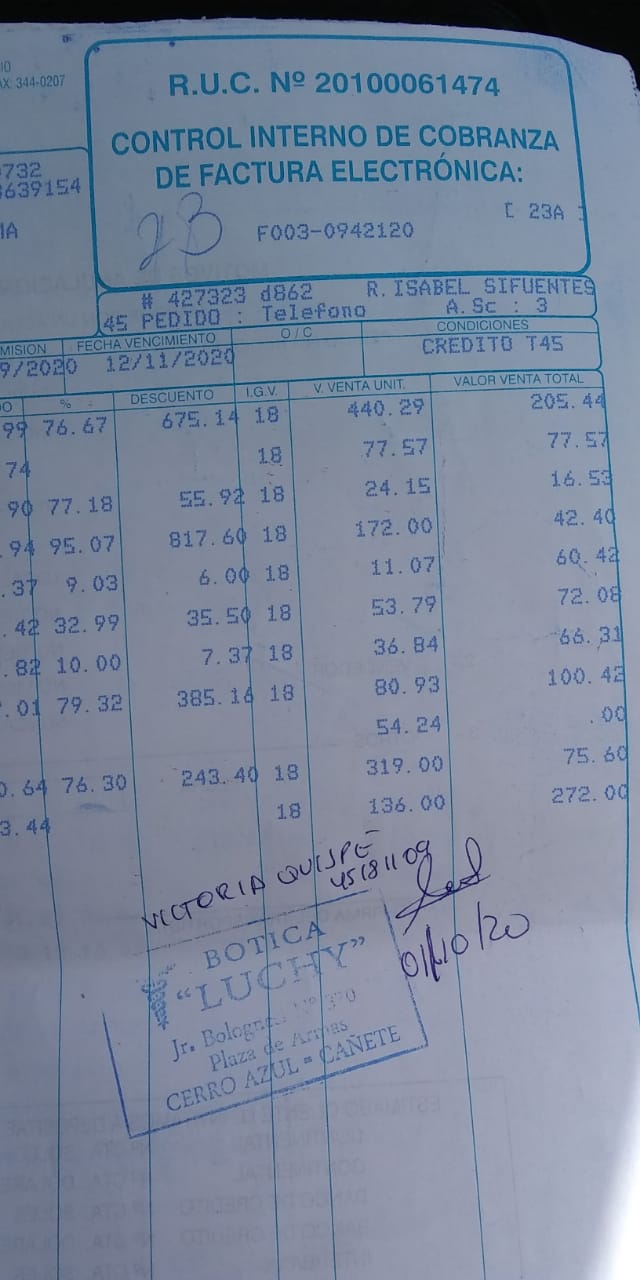 AX: 344-0207
R.U.C. Nº 20100061474
CONTROL INTERNO DE COBRANZA
DE FACTURA ELECTRÓNICA:
0732
639154
IA
[ 23A ]
23
F003-0942120
# 427323 d862 R.ISABEL SIFUENTES
45 PEDIDO : Telefono A.Sc : 3
MISION FECHA VENCIMIENTO O / C CONDICIONES
9/2020 12/11/2020 CREDITO T45
DO % DESCUENTO I.G.V. V. VENTA UNIT. VALOR VENTA TOTAL
99 76.67 675.14 18 440.29 205.44
74 18 77.57 77.57
90 77.18 55.92 18 24.15 16.53
.94 95.07 817.60 18 172.00 42.40
.37 9.03 6.00 18 11.07 60.42
.42 32.99 35.50 18 53.79 72.08
.82 10.00 7.37 18 36.84 66.31
.01 79.32 385.16 18 80.93 100.42
54.24 .00
0.64 76.30 243.40 18 319.00 75.60
3.44 18 136.00 272.00
VICTORIA QUISPE
45181109
01/10/20
BOTICA
"LUCHY"
Jr. Bolognesi Nº 370
Plaza de Armas
CERRO AZUL = CAÑETE